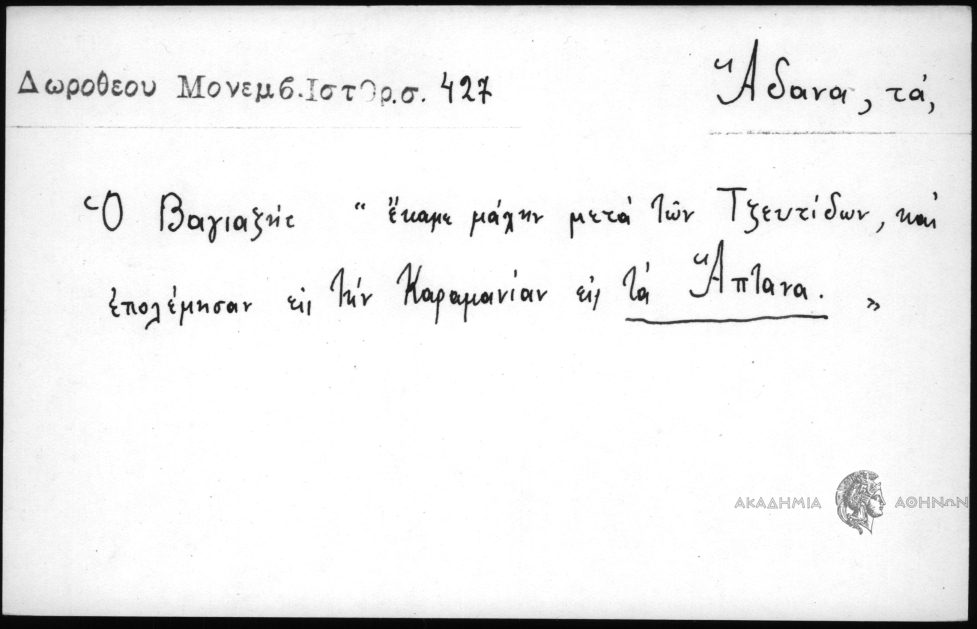 Δωροθεου Μονεμβ.Ιστορ.σ. 427
Ἄδανα, τά,
Ὁ Βαγιαζήτ “ ἔκαμε μάχην μετά τῶν Τζευτίδων, καί
ἐπολέμησαν εἰς τήν Καραμανίαν εἰς τά Ἄπτανα. ”
ΑΚΑΔΗΜΙΑ ΑΘΗΝΩΝ